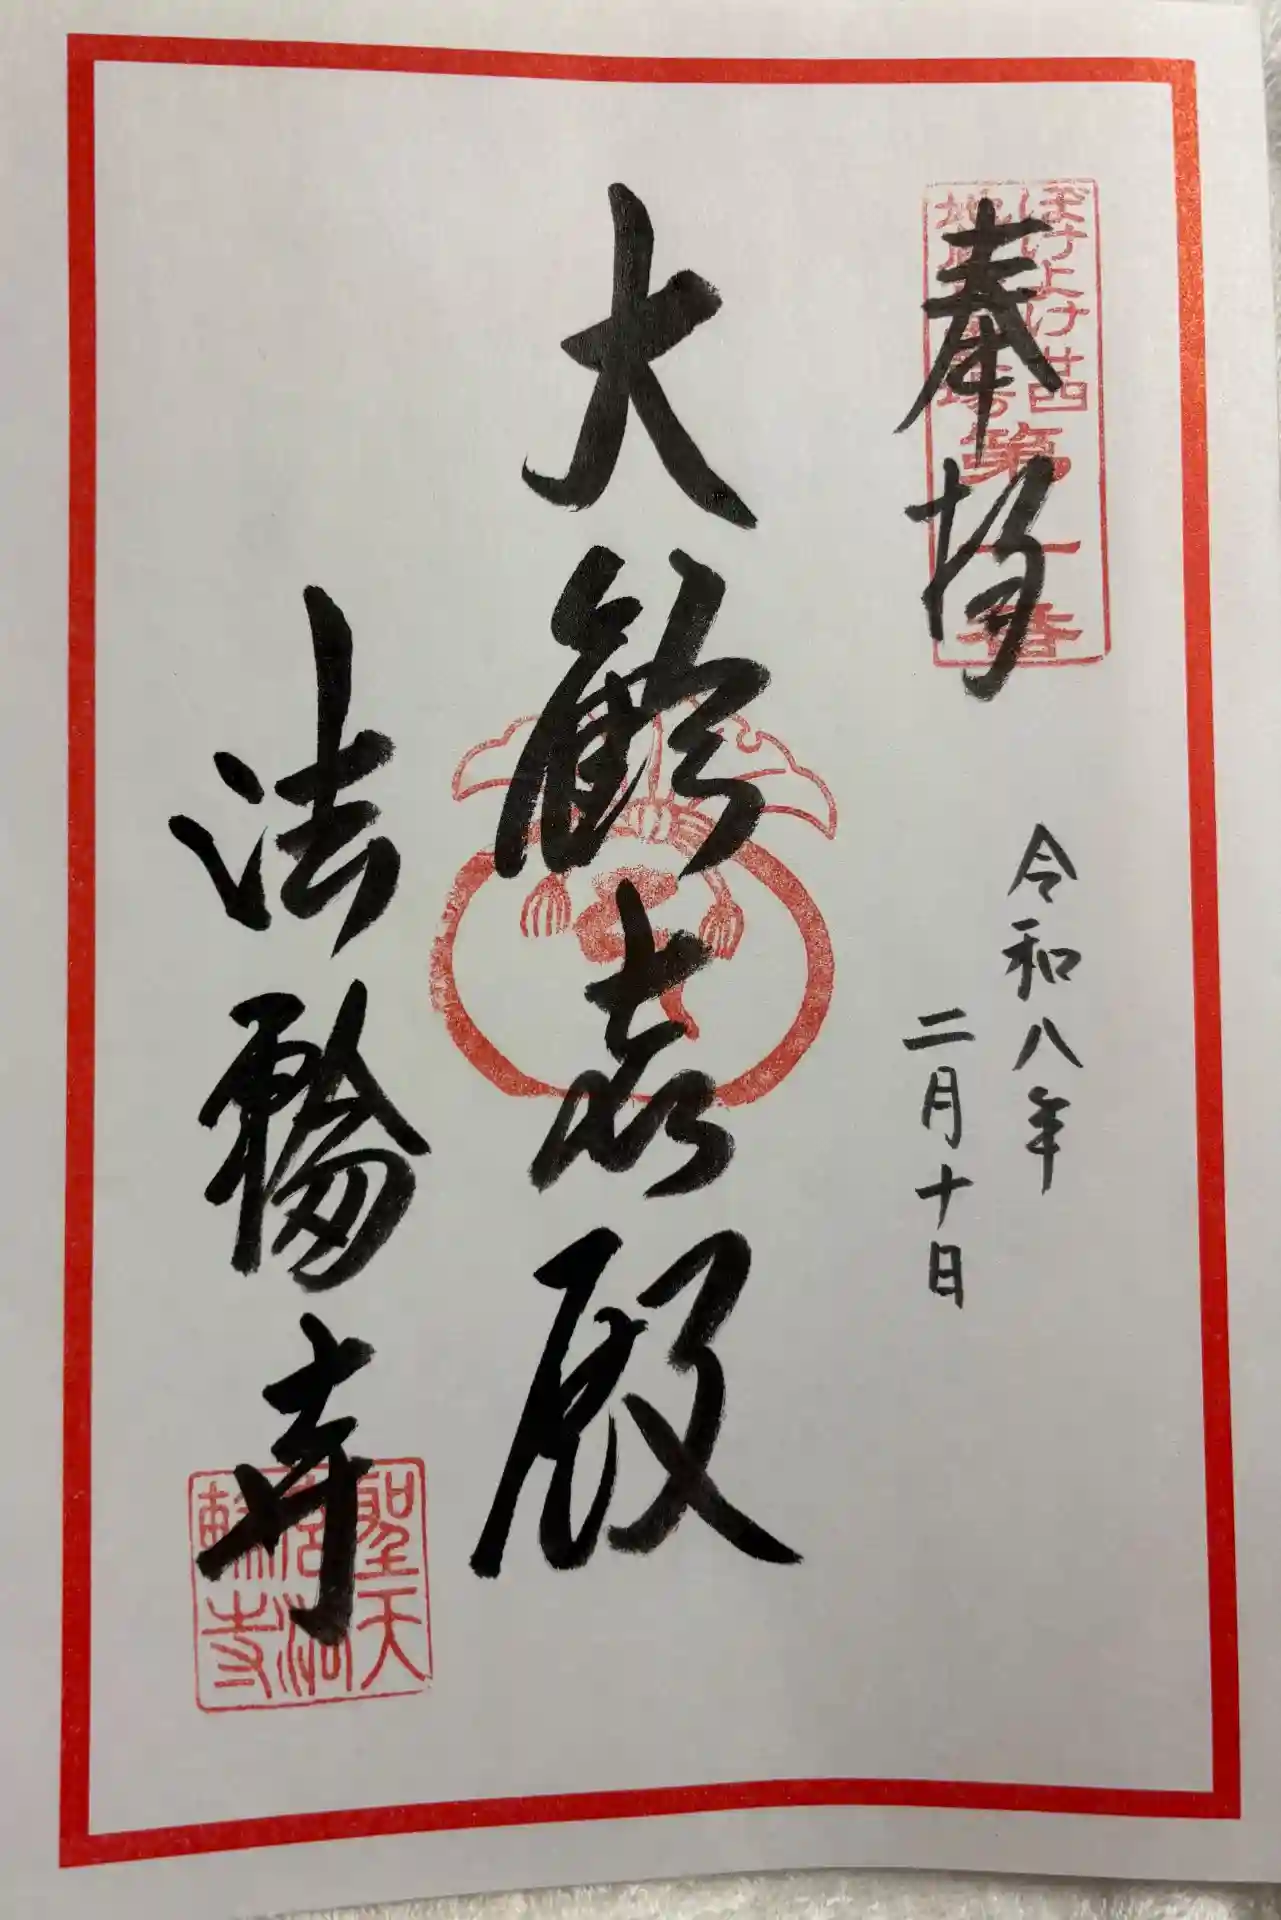 奉拝
ぼけよけ廿四
第一番
令和八年
二月十日
大歓喜殿
法輪寺
聖天
宮法
輪寺